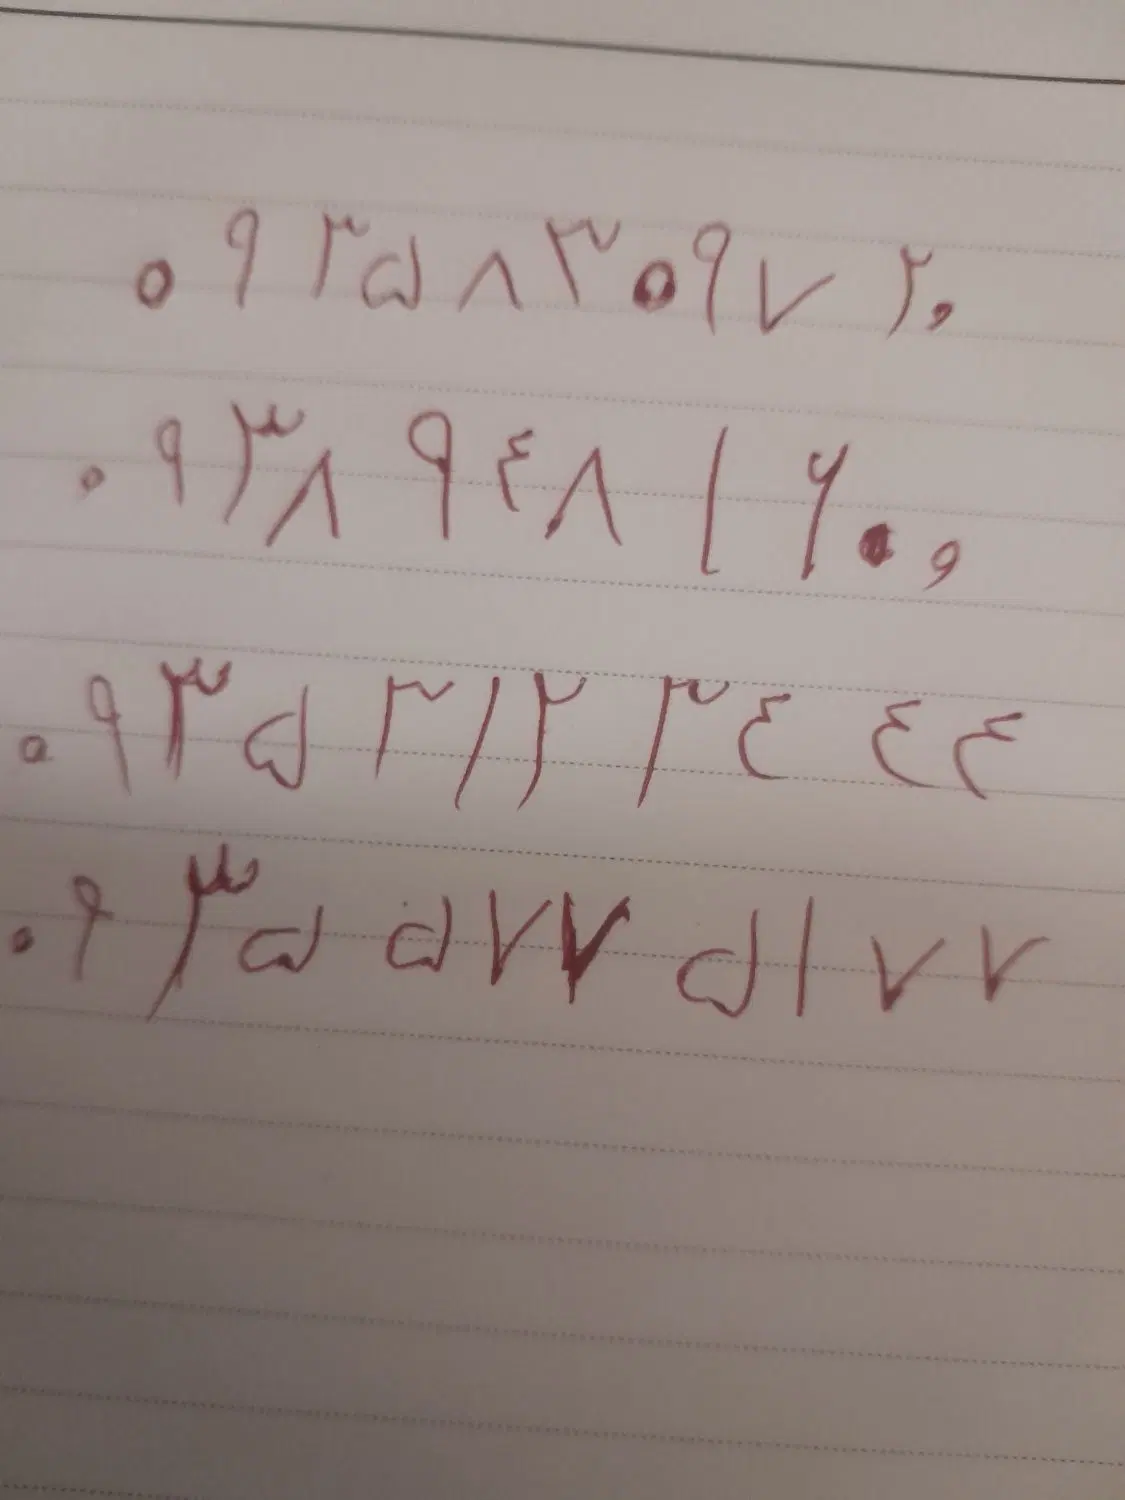 ۰۹۳۵۸۳۰۹۷۲۰
۰۹۳۸۹۴۸۱۶۰۰
۰۹۳۵۳۱۲۳۴۴۴
۰۹۳۵۵۷۷۵۱۷۷